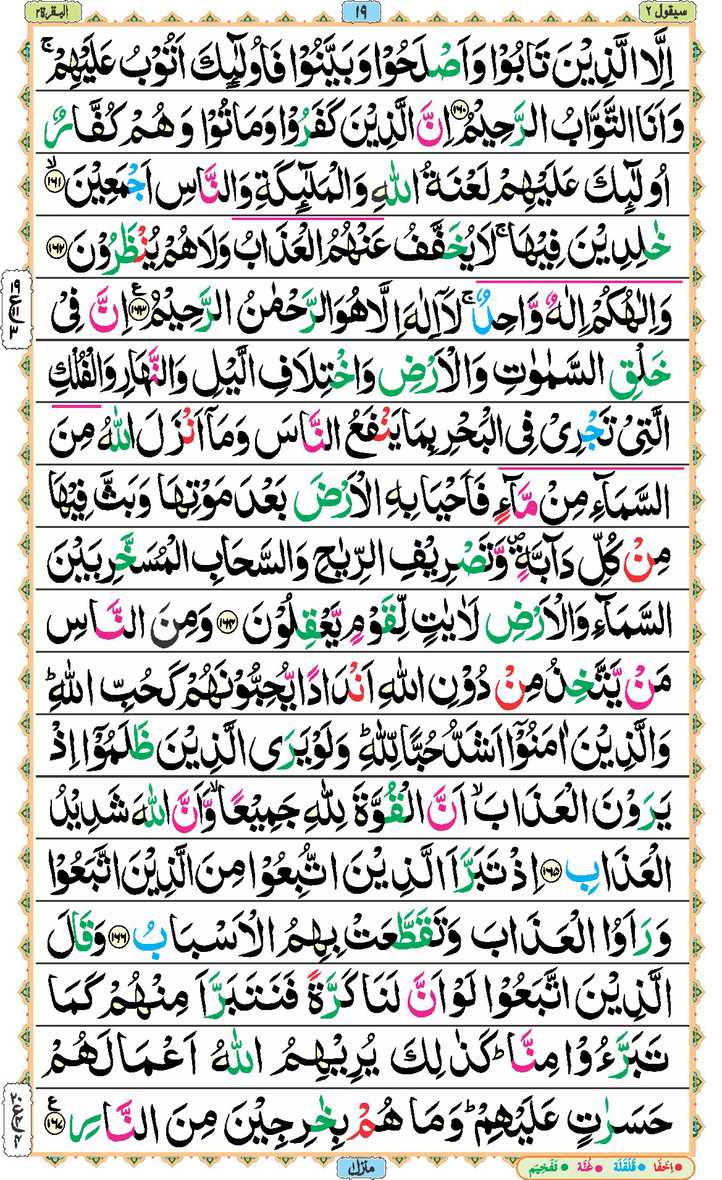 سيقول ٢
١٩
البقرة ٢
اِلَّا الَّذِيْنَ تَابُوْا وَاَصْلَحُوْا وَبَيَّنُوْا فَاُولٰٓئِكَ اَتُوْبُ عَلَيْهِمْ ۚ
وَاَنَا التَّوَّابُ الرَّحِيْمُ ﴿١٦٠﴾ اِنَّ الَّذِيْنَ كَفَرُوْا وَمَاتُوْا وَهُمْ كُفَّارٌ
اُولٰٓئِكَ عَلَيْهِمْ لَعْنَةُ اللّٰهِ وَالْمَلٰٓئِكَةِ وَالنَّاسِ اَجْمَعِيْنَ ۙ﴿١٦١﴾
خٰلِدِيْنَ فِيْهَا ۚ لَا يُخَفَّفُ عَنْهُمُ الْعَذَابُ وَلَا هُمْ يُنْظَرُوْنَ ﴿١٦٢﴾
وَاِلٰهُكُمْ اِلٰهٌ وَّاحِدٌ ۚ لَآ اِلٰهَ اِلَّا هُوَ الرَّحْمٰنُ الرَّحِيْمُ ﴿١٦٣﴾ ع اِنَّ فِيْ
خَلْقِ السَّمٰوٰتِ وَالْاَرْضِ وَاخْتِلَافِ الَّيْلِ وَالنَّهَارِ وَالْفُلْكِ
الَّتِيْ تَجْرِيْ فِي الْبَحْرِ بِمَا يَنْفَعُ النَّاسَ وَمَآ اَنْزَلَ اللّٰهُ مِنَ
السَّمَآءِ مِنْ مَّآءٍ فَاَحْيَا بِهِ الْاَرْضَ بَعْدَ مَوْتِهَا وَبَثَّ فِيْهَا
مِنْ كُلِّ دَآبَّةٍ ۪ وَّتَصْرِيْفِ الرِّيٰحِ وَالسَّحَابِ الْمُسَخَّرِ بَيْنَ
السَّمَآءِ وَالْاَرْضِ لَاٰيٰتٍ لِّقَوْمٍ يَّعْقِلُوْنَ ﴿١٦٤﴾ وَمِنَ النَّاسِ
مَنْ يَّتَّخِذُ مِنْ دُوْنِ اللّٰهِ اَنْدَادًا يُّحِبُّوْنَهُمْ كَحُبِّ اللّٰهِ ؕ
وَالَّذِيْنَ اٰمَنُوْٓا اَشَدُّ حُبًّا لِّلّٰهِ ؕ وَلَوْ يَرَى الَّذِيْنَ ظَلَمُوْٓا اِذْ
يَرَوْنَ الْعَذَابَ ۙ اَنَّ الْقُوَّةَ لِلّٰهِ جَمِيْعًا ۙ وَّاَنَّ اللّٰهَ شَدِيْدُ
الْعَذَابِ ﴿١٦٥﴾ اِذْ تَبَرَّاَ الَّذِيْنَ اتُّبِعُوْا مِنَ الَّذِيْنَ اتَّبَعُوْا
وَرَاَوُا الْعَذَابَ وَتَقَطَّعَتْ بِهِمُ الْاَسْبَابُ ﴿١٦٦﴾ وَقَالَ
الَّذِيْنَ اتَّبَعُوْا لَوْ اَنَّ لَنَا كَرَّةً فَنَتَبَرَّاَ مِنْهُمْ كَمَا
تَبَرَّءُوْا مِنَّا ؕ كَذٰلِكَ يُرِيْهِمُ اللّٰهُ اَعْمَالَهُمْ
حَسَرٰتٍ عَلَيْهِمْ ؕ وَمَا هُمْ بِخٰرِجِيْنَ مِنَ النَّارِ ﴿١٦٧﴾ ع
منزل ١
اِخْفَا قَلْقَلَة غُنَّة تَفْخِيْم